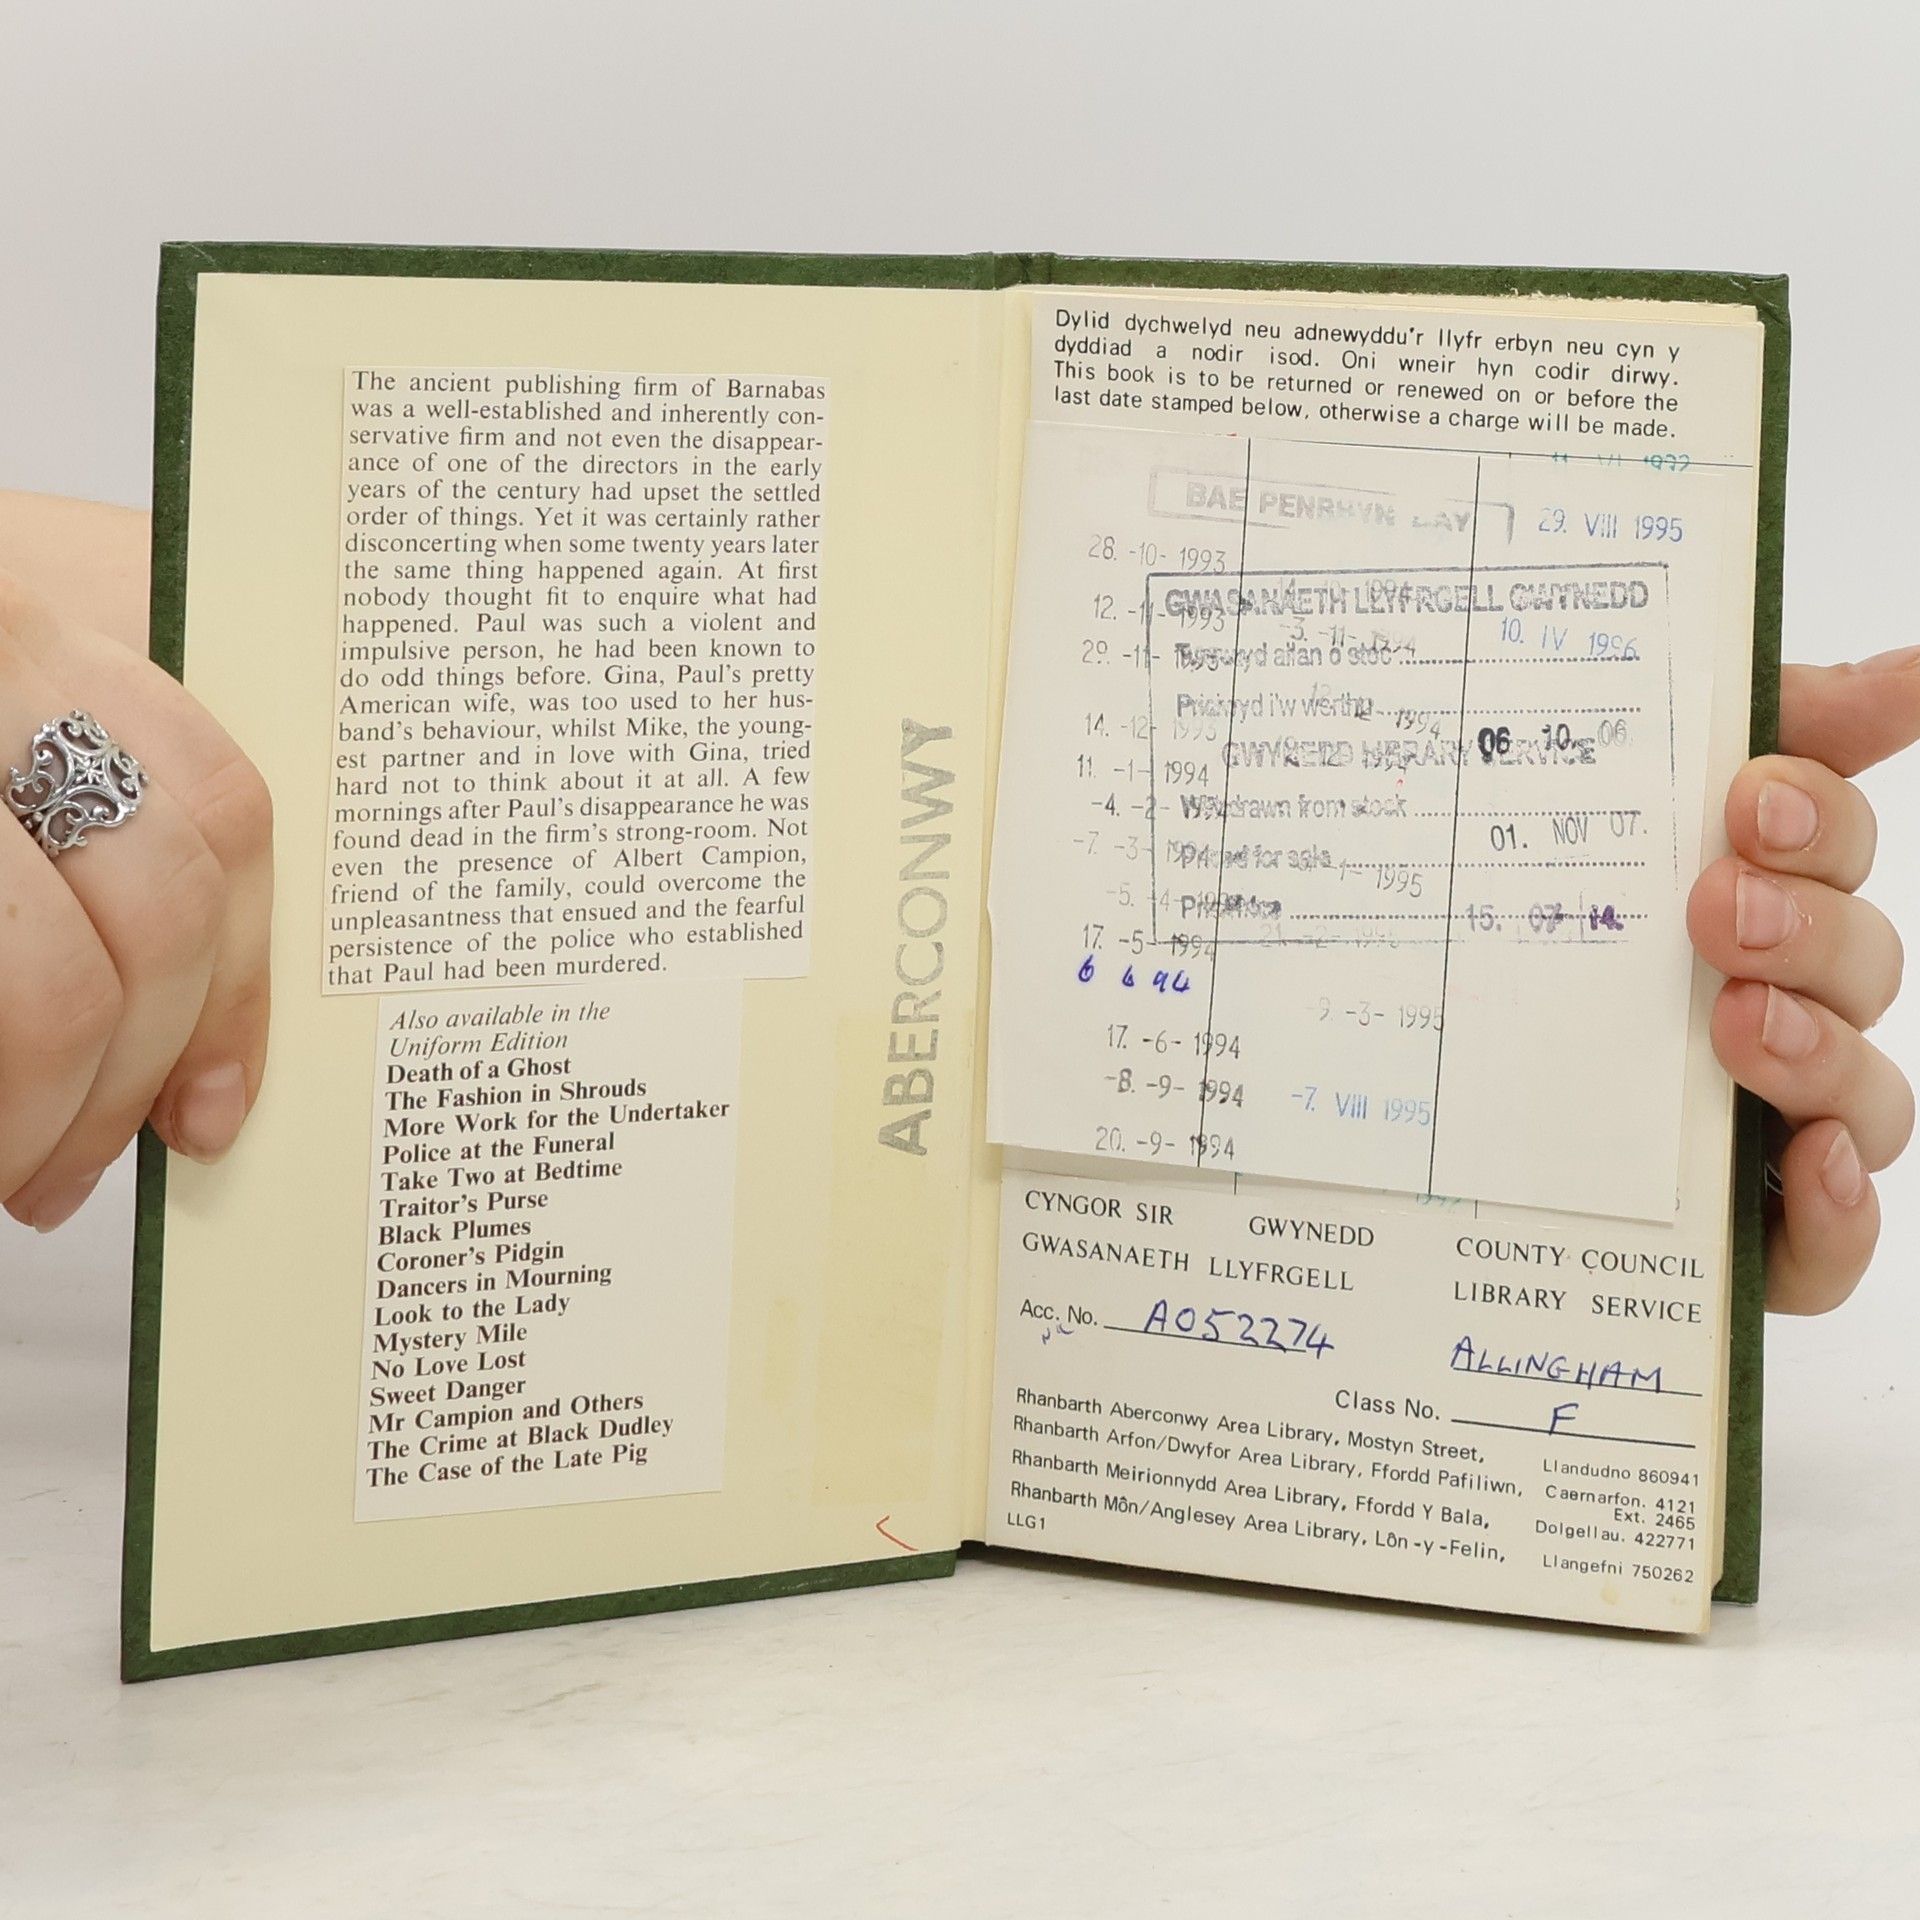 The ancient publishing firm of Barnabas
was a well-established and inherently con-
servative firm and not even the disappear-
ance of one of the directors in the early
years of the century had upset the settled
order of things. Yet it was certainly rather
disconcerting when some twenty years later
the same thing happened again. At first
nobody thought fit to enquire what had
happened. Paul was such a violent and
impulsive person, he had been known to
do odd things before. Gina, Paul's pretty
American wife, was too used to her hus-
band's behaviour, whilst Mike, the young-
est partner and in love with Gina, tried
hard not to think about it at all. A few
mornings after Paul's disappearance he was
found dead in the firm's strong-room. Not
even the presence of Albert Campion,
friend of the family, could overcome the
unpleasantness that ensued and the fearful
persistence of the police who established
that Paul had been murdered.
Also available in the
Uniform Edition
Death of a Ghost
The Fashion in Shrouds
More Work for the Undertaker
Police at the Funeral
Take Two at Bedtime
Traitor's Purse
Black Plumes
Coroner's Pidgin
Dancers in Mourning
Look to the Lady
Mystery Mile
No Love Lost
Sweet Danger
Mr Campion and Others
The Crime at Black Dudley
The Case of the Late Pig
ABERCONWY
Dylid dychwelyd neu adnewyddu'r llyfr erbyn neu cyn y
dyddiad a nodir isod. Oni wneir hyn codir dirwy.
This book is to be returned or renewed on or before the
last date stamped below, otherwise a charge will be made.
BAE PENRHYN BAY
29. VIII 1995
28. -10- 1993
GWASANAETH LLYFRGELL GWYNEDD
12. -11- 1993
-3. -11- 1994
10. IV 1996
29. -11- 1993
allan o stoc
14. -12- 1993
i'w werthu
1994
GWYNEDD LIBRARY SERVICE
06 10. 06
11. -1- 1994
-4. -2-
Withdrawn from stock
01. NOV 07.
-7. -3-
Priced for sale
1995
-5. -4-
15. 07 14
17. -5- 1994
21. -2- 1995
6 6 94
-9. -3- 1995
17. -6- 1994
-8. -9- 1994
-7. VIII 1995
20. -9- 1994
CYNGOR SIR GWYNEDD COUNTY COUNCIL
GWASANAETH LLYFRGELL LIBRARY SERVICE
Acc. No. A052274
ALLINGHAM
Class No. F
Rhanbarth Aberconwy Area Library, Mostyn Street, Llandudno 860941
Rhanbarth Arfon/Dwyfor Area Library, Ffordd Pafiliwn, Caernarfon. 4121
Ext. 2465
Rhanbarth Meirionnydd Area Library, Ffordd Y Bala, Dolgellau. 422771
Rhanbarth Môn/Anglesey Area Library, Lôn-y-Felin, Llangefni 750262
LLG1